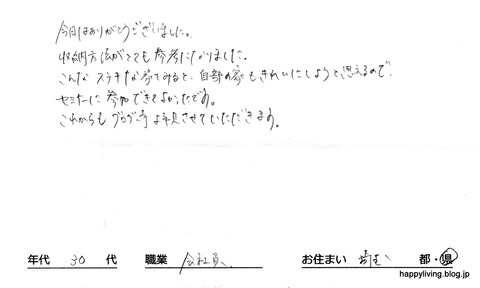 今日はありがとうございました。
収納方法がとても参考になりました。
こんなステキな家でみると、自部の家もきれいにしようと思えるので、
セミナーに参加できてよかったです。
これからもブログ等拝見させていただきます。
年代 30 代 職業 会社員 お住まい 埼玉 都・県
happyliving.blog.jp